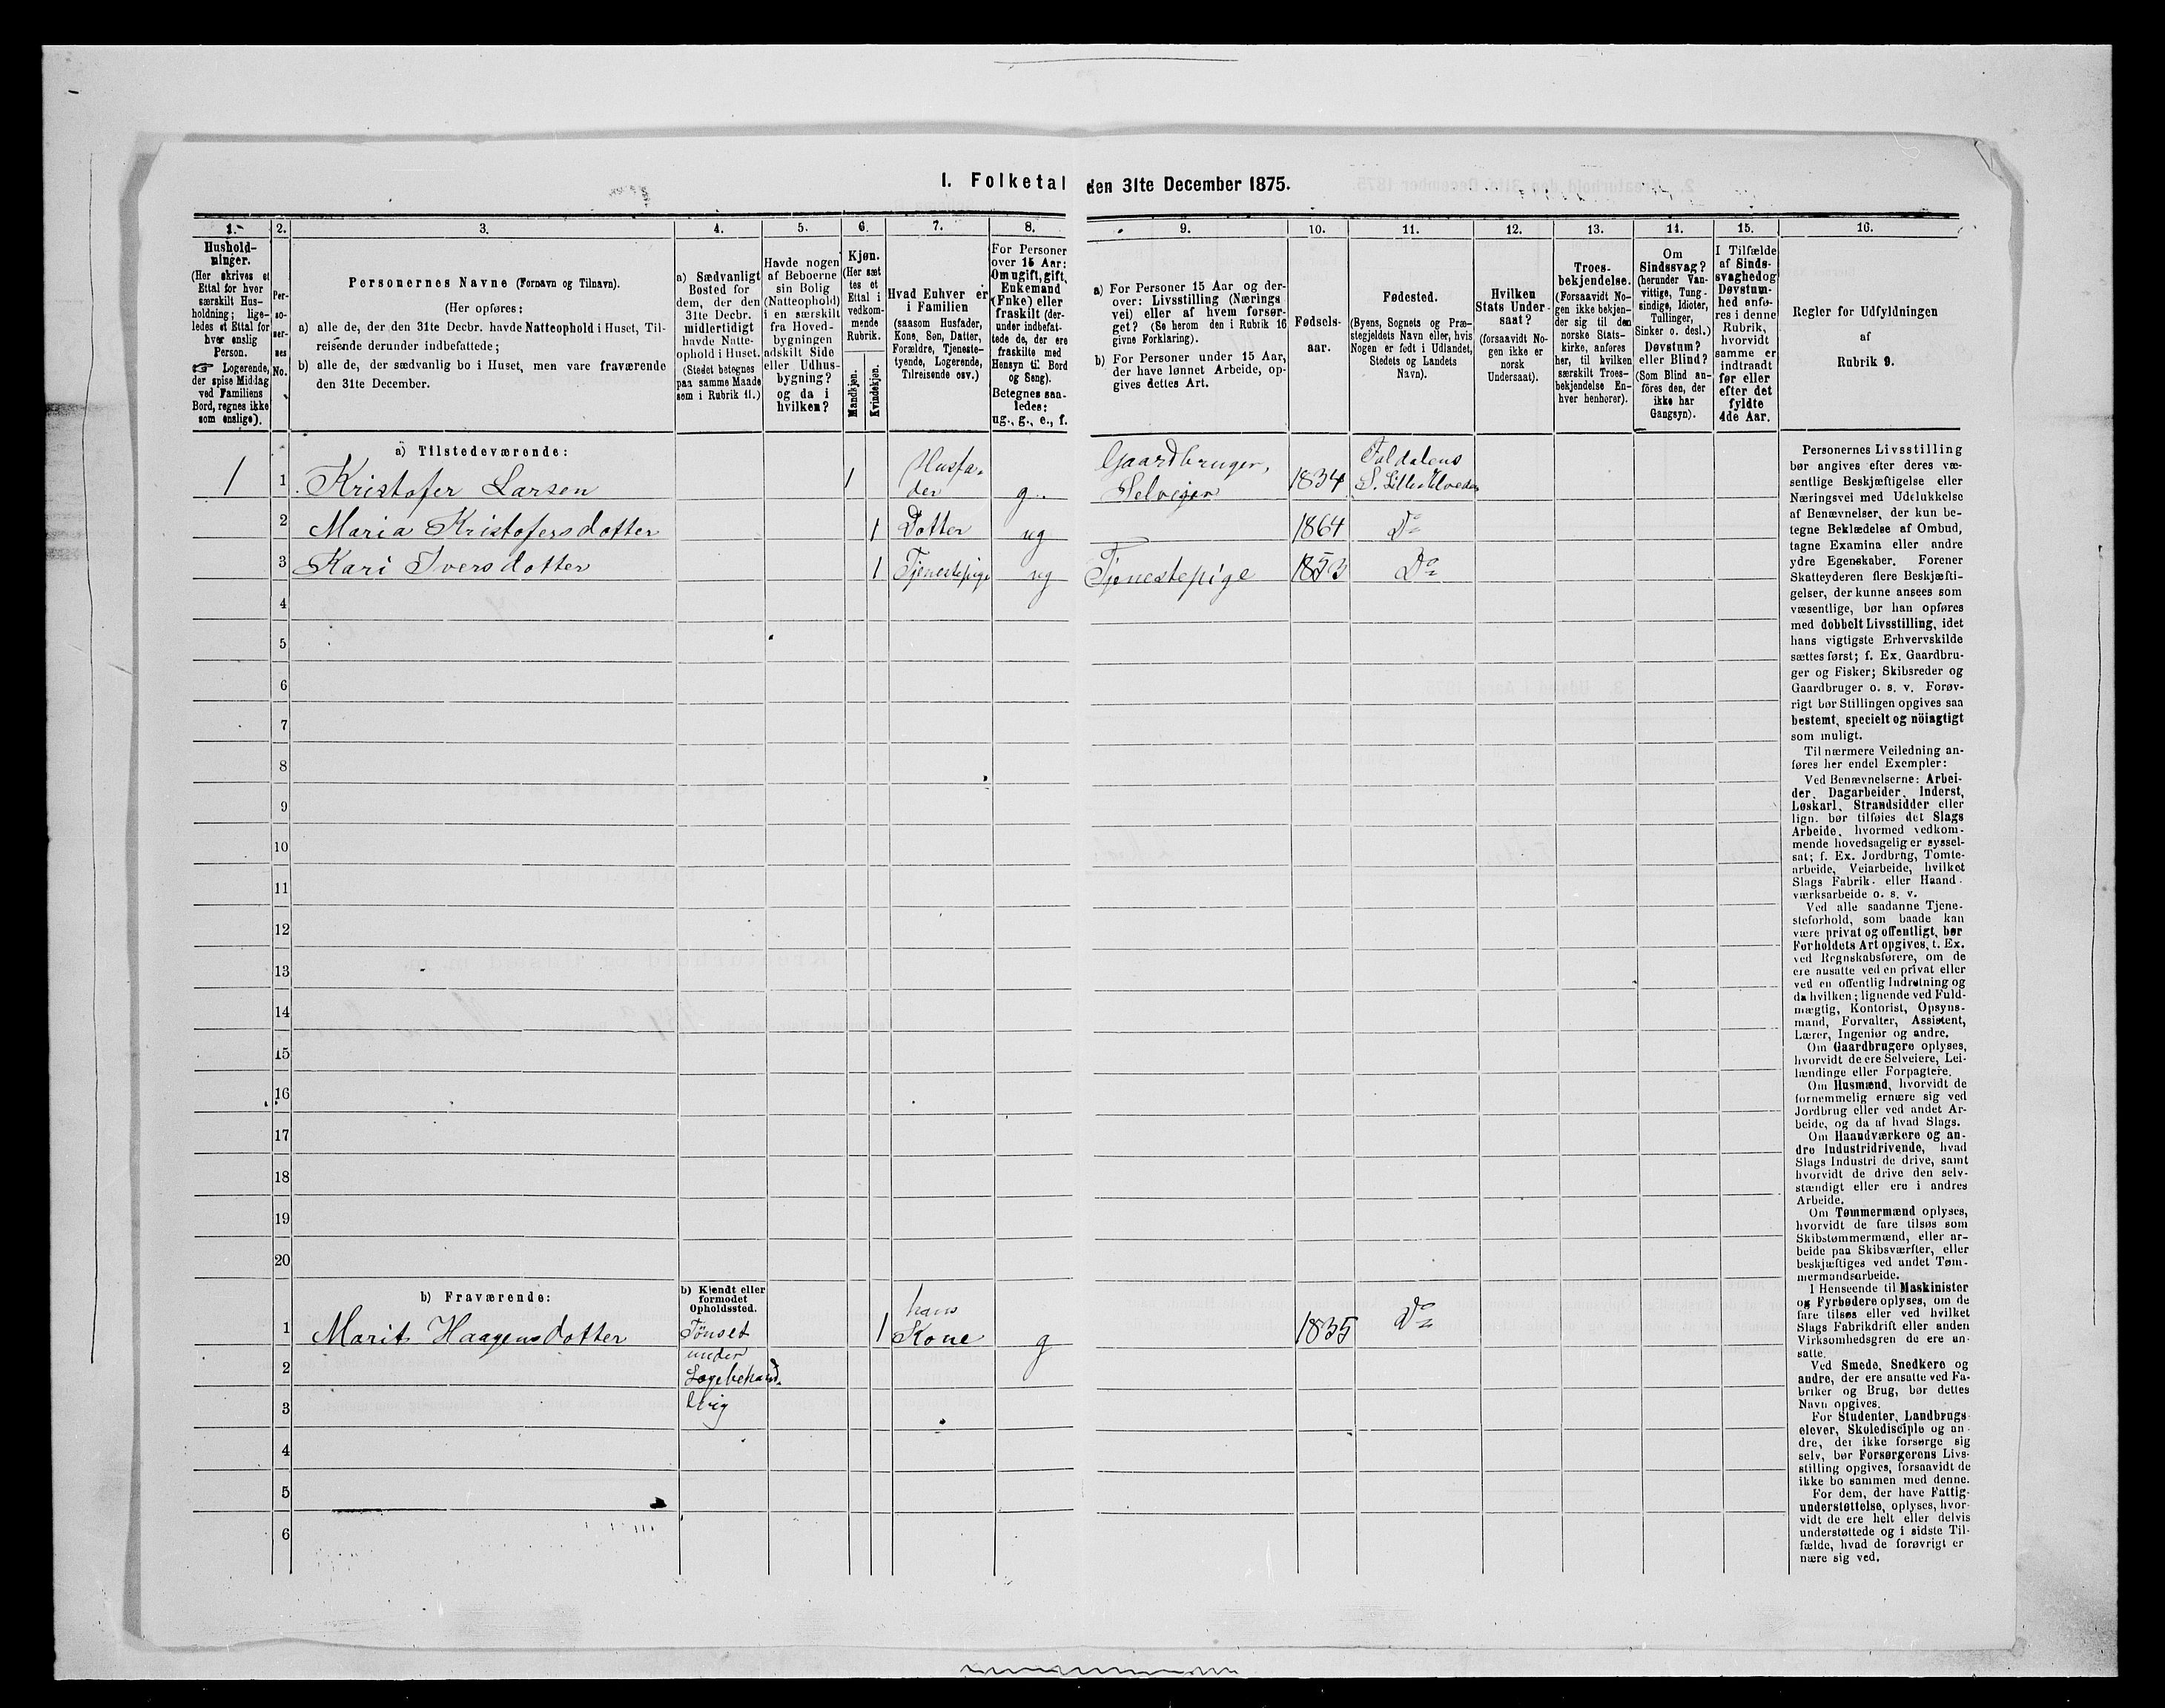 I. Folketal den 31te December 1875.
1. 2. 3. 4. 5. 6. 7. 8. 9. 10. 11. 12. 13. 14. 15. 16.
Hushold-
ninger.
(Her skrives et
Ettal for hver
særskilt Hus-
holdning; lige-
ledes et Ettal for
hver enslig
Person.
☞ Logerende,
der spise Middag
ved Familiens
Bord, regnes ikke
som enslige).
Per-
so-
ner-
nes
No.
Personernes Navne (Fornavn og Tilnavn).
(Her opføres:
a) alle de, der den 31te Decbr. havde Natteophold i Huset, Til-
reisende derunder indbefattede;
b) alle de, der sædvanlig bo i Huset, men vare fraværende
den 31te December.
a) Sædvanligt
Bosted for
dem, der den
31te Decbr.
midlertidigt
havde Natte-
ophold i Huset.
(Stedet betegnes
paa samme Maade
som i Rubrik 11.)
Havde nogen
af Beboerne
sin Bolig
(Natteophold)
i en særskilt
fra Hoved-
bygningen
adskilt Side
eller Udhus-
bygning?
og da i
hvilken?
Kjøn.
(Her sæt
tes et
Ettal i
vedkom-
mende
Rubrik.
Mandkjøn.
Kvindekjøn.
Hvad Enhver er
i Familien
(saasom Husfader,
Kone, Søn, Datter,
Forældre, Tjeneste-
tyende, Logerende,
Tilreisende osv.)
For Personer
over 15 Aar:
Om ugift, gift,
Enkemand
(Enke) eller
fraskilt (der-
under indbefat-
tede de, der ere
fraskilte med
Hensyn til Bord
og Seng).
Betegnes saa-
ledes:
ug., g., e., f.
a) For Personer 15 Aar og der-
over: Livsstilling (Nærings
vei) eller af hvem forsør-
get? (Se herom den i Rubrik 16
givne Forklaring).
b) For Personer under 15 Aar,
der have lønnet Arbeide, op-
gives dettes Art.
Fødsels-
aar.
Fødested.
(Byens, Sognets og Præ-
stegjeldets Navn eller, hvis
Nogen er født i Udlandet,
Stedets og Landets
Navn).
Hvilken
Stats Under-
saat?
(forsaavidt No-
gen ikke er
norsk
Undersaat).
Troes-
bekjendelse.
(Forsaavidt No-
gen ikke bekjen-
der sig til den
norske Stats-
kirke, anføres
her, til hvilken
særskilt Troes-
bekjendelse En-
hver henhører).
Om
Sindssvag?
(herunder Van-
vittige, Tung-
sindige, Idioter,
Tullinger,
Sinker o. desl.)
Døvstum?
eller Blind?
(Som Blind an-
føres den, der
ikke har
Gangsyn).
I Tilfælde
af Sinds-
svaghed og
Døvstum-
hed anfø-
res i denne
Rubrik,
hvorvidt
samme er
indtraadt
før eller
efter det
fyldte
4de Aar.
Regler for Udfyldningen
af
Rubrik 9.
a) Tilstedeværende:
1 1 Kristofer Larsen 1 Husfa-
der g. Gaardbruger,
Selveier 1834 Foldalens
S. Lille Elvedal
2 Maria Kristofersdotter 1 Dotter ug 1864 Do
3 Kari Iversdotter 1 Tjenestepige ug Tjenestepige 1853 Do
4
5
6
7
8
9
10
11
12
13
14
15
16
17
18
19
20
b) Fraværende:
b) Kjendt eller
formodet
Opholdssted.
1 Marit Haagensdotter Tönset
under
Lægebehand-
ling 1 hans
Kone g 1835 Do
2
3
4
5
6
Personernes Livsstilling
bør angives efter deres væ-
sentlige Beskjæftigelse eller
Næringsvei med Udelukkelse
af Benævnelser, der kun be-
tegne Beklædelse af Ombud,
tagne Examina eller andre
ydre Egenskaber. Forener
Skatteyderen flere Beskjæfti-
gelser, der kunne ansees som
væsentlige, bør han opføres
med dobbelt Livsstilling, idet
hans vigtigste Erhvervskilde
sættes først; f. Ex. Gaardbru-
ger og Fisker; Skibsreder og
Gaardbruger o. s. v. Forøv-
rigt bør Stillingen opgives saa
bestemt, specielt og nöiagtigt
som muligt.
Til nærmere Veiledning an-
føres her endel Exempler:
Ved Benævnelserne: Arbei-
der, Dagarbeider, Inderst,
Løskarl, Strandsidder eller
lign. bør tilføies det Slags
Arbeide, hvormed vedkom-
mende hovedsagelig er syssel-
sat; f. Ex. Jordbrug, Tomte-
arbeide, Veiarbeide, hvilket
Slags Fabrik- eller Haand-
værksarbeide o. s. v.
Ved alle saadanne Tjene-
steforhold, som baade kan
være privat og offentligt, bør
Forholdets Art opgives, t. Ex.
ved Regnskabsførere, om de
ere ansatte ved en privat eller
ved en offentlig Indretning og
da hvilken; lignende ved Fuld-
mægtig, Kontorist, Opsyns-
mand, Forvalter, Assistent,
Lærer, Ingeniør og andre.
Om Gaardbrugere oplyses,
hvorvidt de ere Selveiere, Lei-
lændinge eller Forpagtere.
Om Husmænd, hvorvidt de
fornemmelig ernære sig ved
Jordbrug eller ved andet Ar-
beide, og da af hvad Slags.
Om Haandværkere og an-
dre Industridrivende, hvad
Slags Industri de drive, samt
hvorvidt de drive den selv-
stændigt eller ere i andres
Arbeide.
Om Tømmermænd oplyses,
hvorvidt de fare tilsøs som
Skibstømmermænd, eller ar-
beide paa Skibsværfter, eller
beskjæftiges ved andet Tøm-
mermandsarbeide.
I Henseende til Maskinister
og Fyrbødere oplyses, om de
fare tilsøs eller ved hvilket
Slags Fabrikdrift eller anden
Virksomhedsgren de ere an-
satte.
Ved Smede, Snedkere og
andre, der ere ansatte ved Fa-
briker og Brug, bør dettes
Navn opgives.
For Studenter, Landbrugs-
elever, Skoledisciple og an-
dre, der ikke forsørge sig
selv, bør Forsørgerens Livs-
stilling opgives, forsaavidt de
ikke bo sammen med denne.
For dem, der have Fattig-
understøttelse, oplyses, hvor-
vidt de ere helt eller delvis
understøttede og i sidste Til-
fælde, hvad de forøvrigt er
nære sig ved.